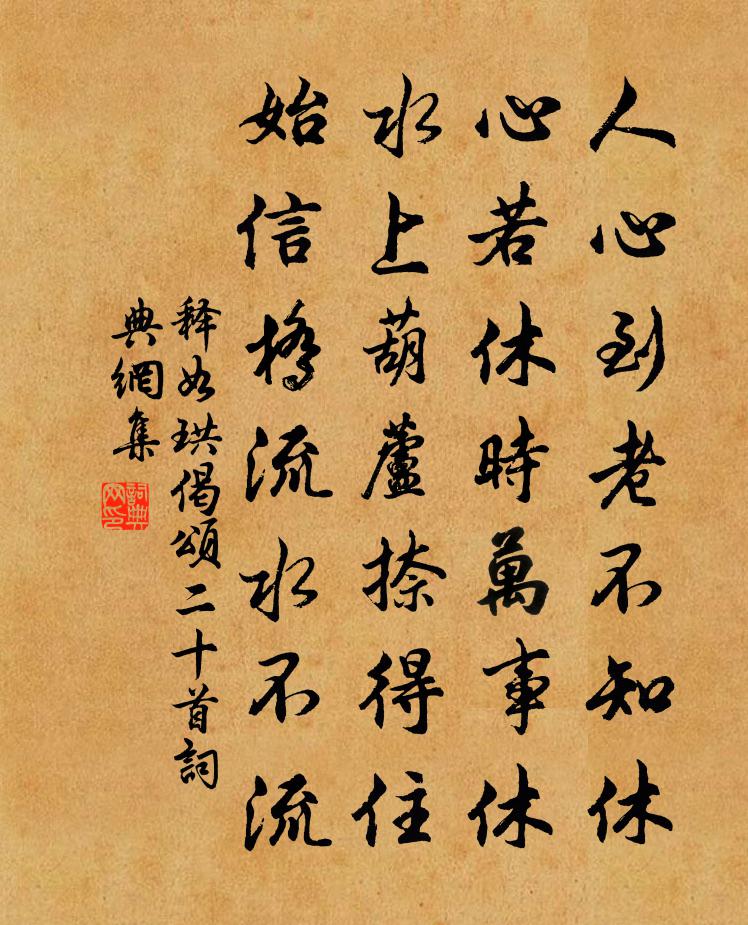 人心到老不知休
心若休時萬事休
水上葫蘆捺得住
始信橋流水不流
释如珙偈頌二十首詞
典網集
詞典
网印